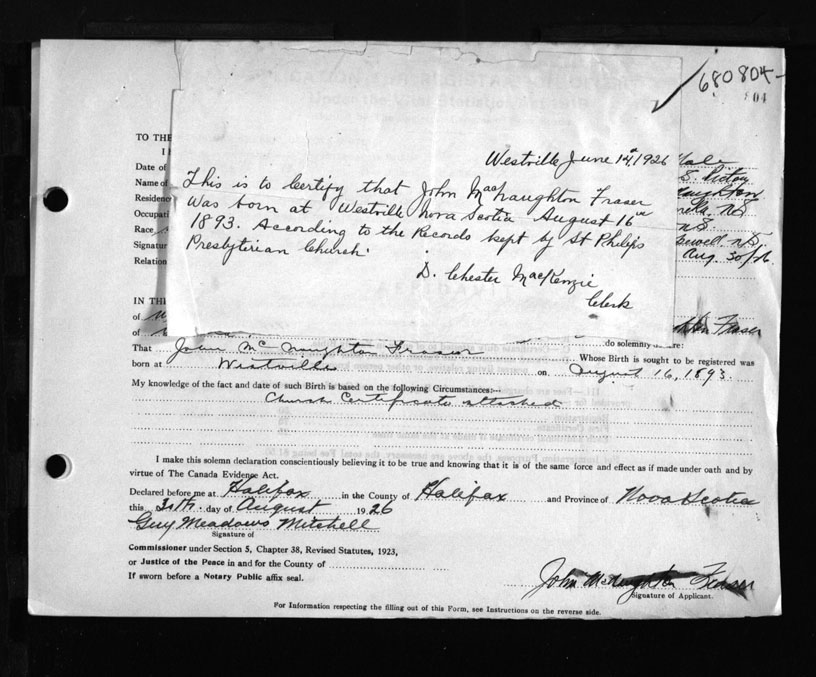 680804
804
Westville June 14th, 1926
This is to Certify that John MacNaughton Fraser
was born at Westville Nova Scotia August 16th
1893. According to the Records kept by St Philips
Presbyterian Church.
D. Chester MacKenzie
Clerk
TO THE
I
Date of
Male
Name of
N.S. Pictou
Residence
Occupati
N.S.
Race
N.S.
Signatur
Aug. 30/26
Relation
IN THE
of
Fraser
of
do solemnly re:
That John McNaughton Fraser Whose Birth is sought to be registered was
born at Westville on August 16, 1893.
My knowledge of the fact and date of such Birth is based on the following Circumstances:—
Church Certificate attached
I make this solemn declaration conscientiously believing it to be true and knowing that it is of the same force and effect as if made under oath and by
virtue of The Canada Evidence Act.
Declared before me at Halifax in the County of Halifax and Province of Nova Scotia
this 30th day of August 1926
Guy Meadows Mitchell
Signature of
Commissioner under Section 5, Chapter 38, Revised Statutes, 1923,
or Justice of the Peace in and for the County of
If sworn before a Notary Public affix seal.
John McNaughton Fraser
Signature of Applicant.
For Information respecting the filling out of this Form, see Instructions on the reverse side.